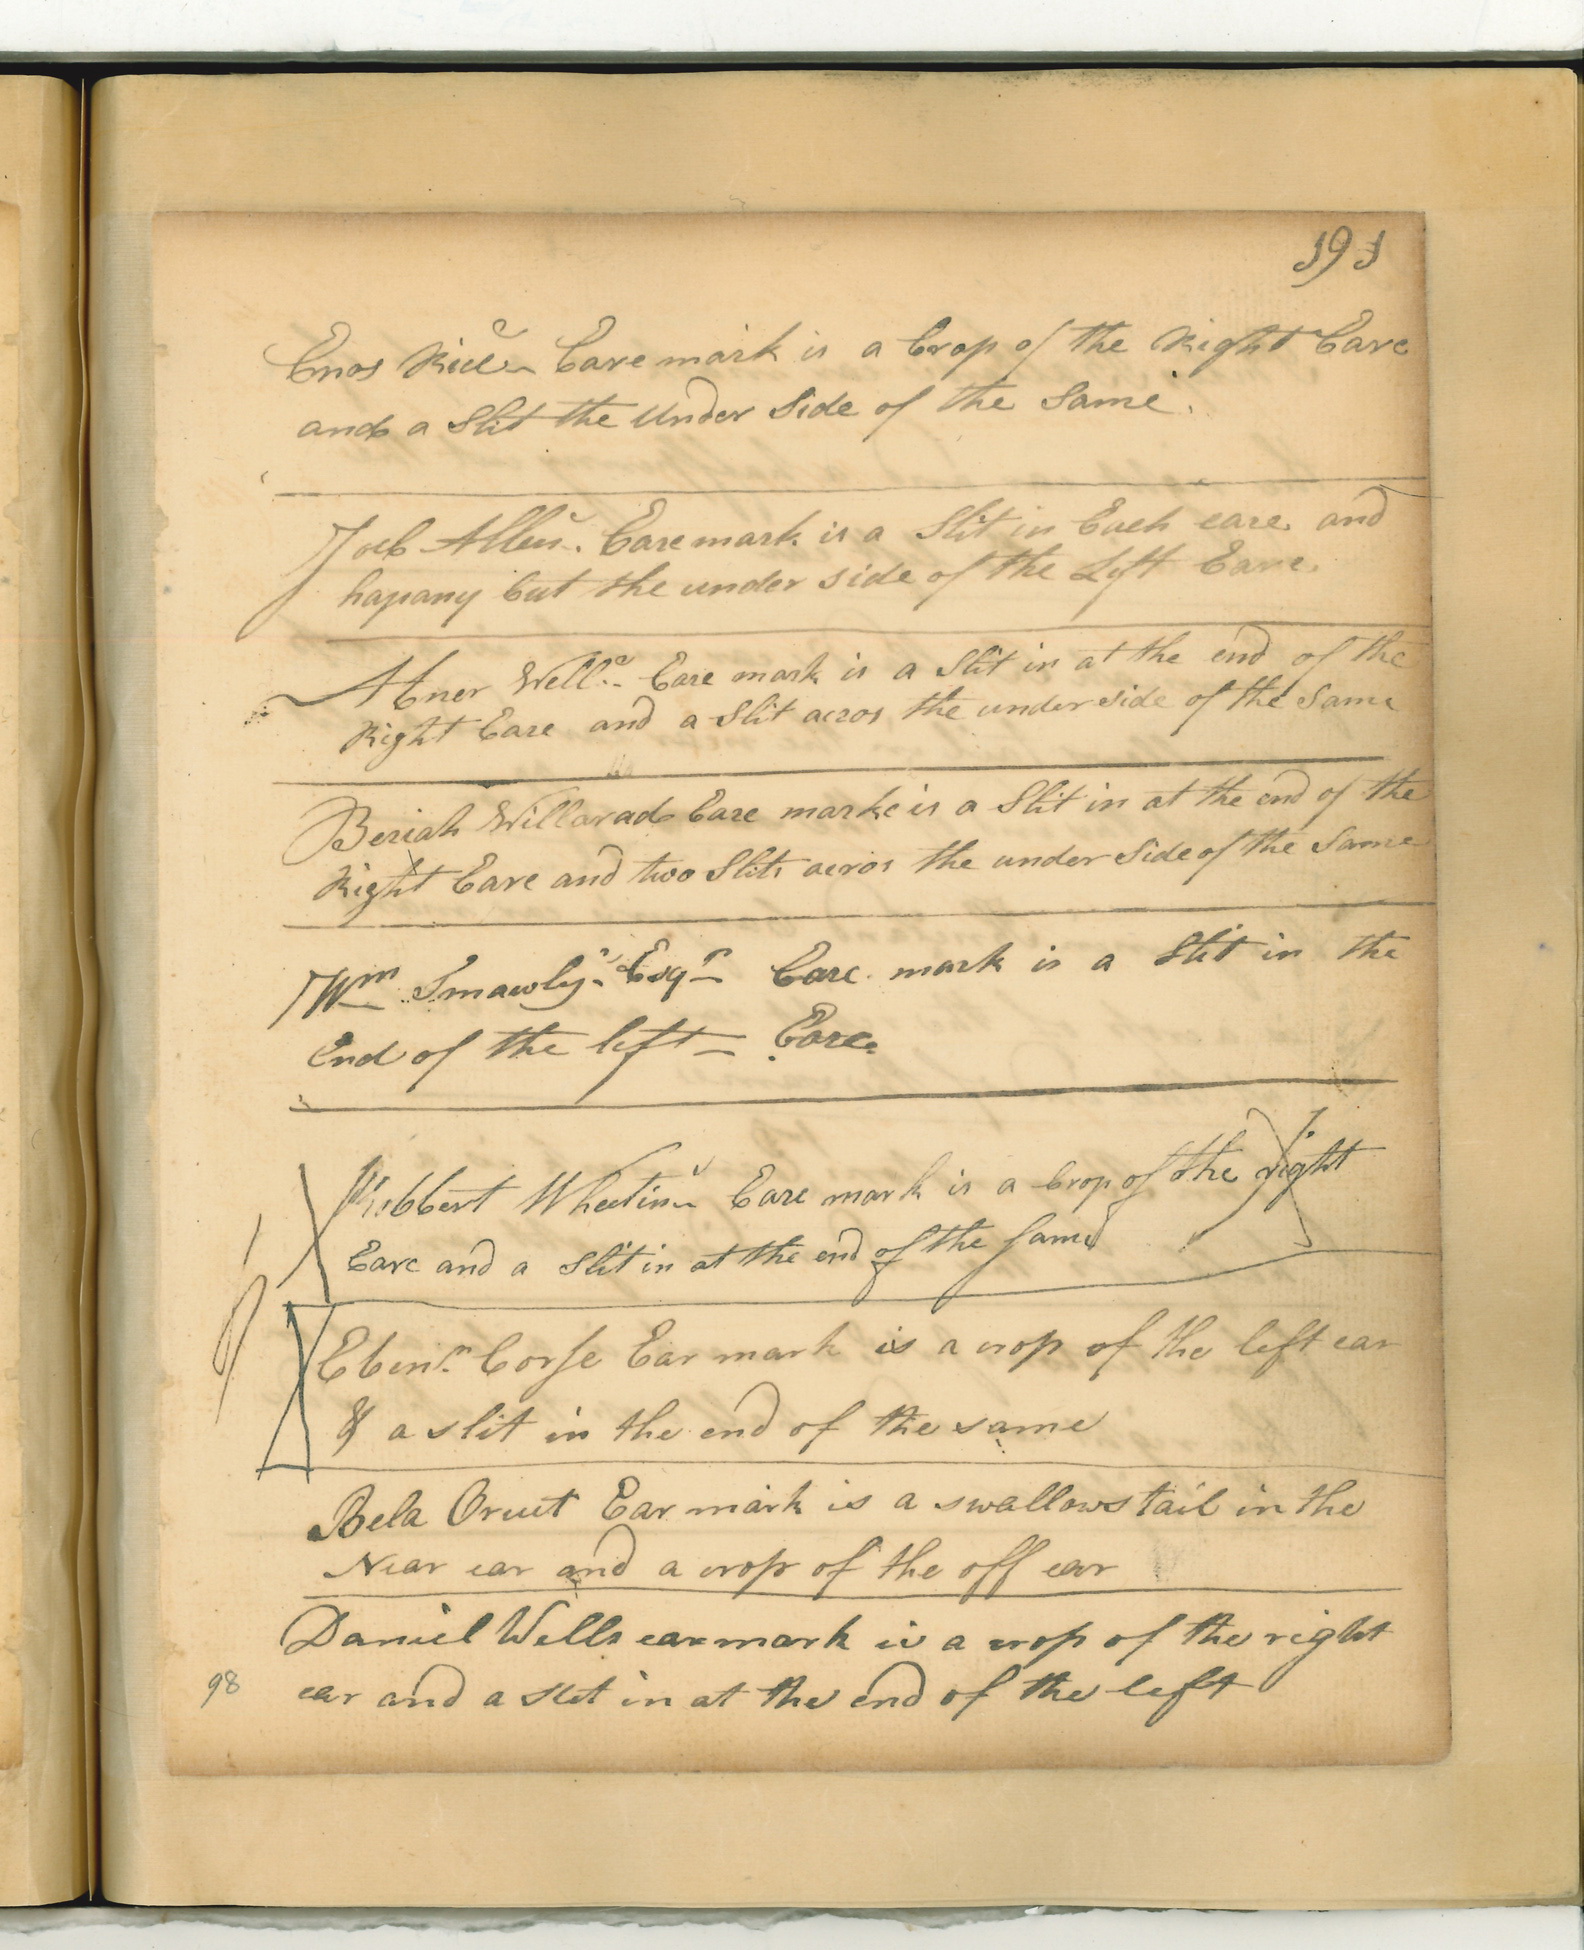 191
Enos Rice Eare mark is a Crop of the Right Eare
and a Slit the Under Side of the Same.
Joel Allen. Eare mark is a Slit in Each eare and
hapany Cut the under side of the Left Eare.
Abner Wells Eare mark is a Slit in at the end of the
Right Eare and a Slit acros the under side of the Same
Beriah Willarad Eare marke is a Slit in at the end of the
Right Eare and two Slits acros the under Side of the Same
Wm Smawly Esqr Eare mark is a Slit in the
End of the left Eare
Robbert Eare mark is a Crop of the right
Eare and a Slit in at the end of the Same
Ebenr Corse Ear mark is a crop of the left ear
& a slit in the end of the same
Bela Orcut Ear mark is a swallows tail in the
Near ear and a crop of the off ear
Daniel Wells ear mark is a crop of the right
98 ear and a slit in at the end of the left